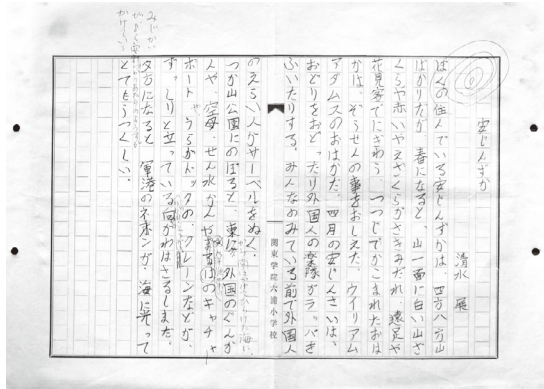 安じんずか
清水 展
ぼくの住んでいる安じんずかは、四方八方山
ばかりだが、春になると、山一面に白い山ざ
くらや赤いやえざくらがさきみだれ、遠足や
花見客でにぎわう つつじでかこまれたおは
かは、ぞうせんの事をおしえた、ウイリアム
アダムスのおはかだ。四月の安じんさいは、
おどりをおどったり外国人の楽隊がラッパを
ふいたりする。みんなのみている前で外国人
のえらい人がサーベルをぬく。
つか山公園にのぼると、東に 外国のぐんか
んや、空母、せん水かんや のキャチャ
ボート うらがドックの、クレーンなどが、
ずっしりと立っている 向がわはさるしまだ。
夕方になると 軍港のネオンが、海に光って
とてもうつくしい。
関東学院六浦小学校
みじかい